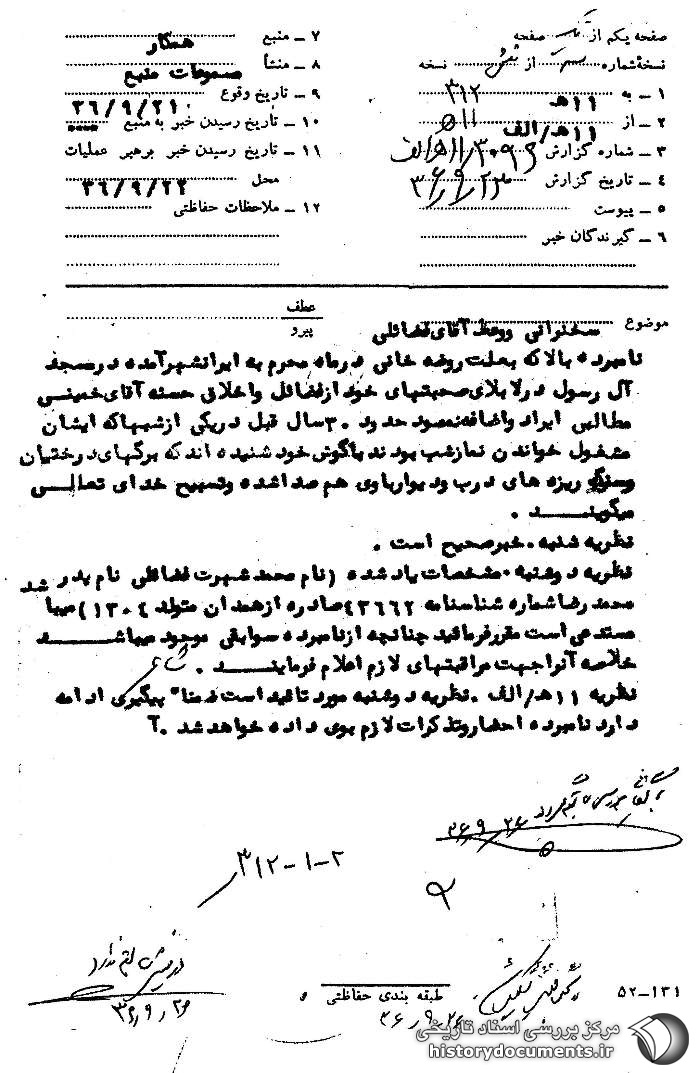 صفحه یکم از یک صفحه
نسخهٔ شماره از شش نسخه
۱ ــ به ۳۱۲
۲ ــ از ۱۱ هـ / الف
۱۱هـ
۳ ــ شماره گزارش
۴ ــ تاریخ گزارش ۳۶/۹/۲۳
۵ ــ پیوست
۶ ــ گیرندگان خبر
۷ ــ منبع همکار
۸ ــ منشأ مسموعات منبع
۹ ــ تاریخ وقوع ۳۶/۹/۲۱۰
۱۰ ــ تاریخ رسیدن خبر به منبع
۱۱ ــ تاریخ رسیدن خبر برهبر عملیات
محل ۳۶/۹/۲۲
۱۲ ــ ملاحظات حفاظتی
موضوع سخنرانی ووعظ آقای فضائلی
عطف
پیرو
نامبرده بالا که بعلت روضه خانی درماه محرم به ایرانشهر آمده در مسجد
آل رسول در لابلای صحبتهای خود از فضائل واخلاق حسنه آقای خمینی
مطالبی ایراد واضافه نمود حدود ۳۰ سال قبل دریکی از شبها که ایشان
مشغول خواندن نماز شب بودند باگوش خود شنیده اند که برگهای درختیان
وسنگ ریزه های درب ودیوار باوی هم صدا شده وتسبیح خدای تعالی
میگویند .
نظریه شنبه . خبر صحیح است .
نظریه دوشنبه . مشخصات یاد شده (نام محمد شهرت فضائلی نام پدر
محمد رضا شماره شناسنامه ۴۳۶۶۲ صادره از همدان متولد ۱۳۰۴) میبا شد
مستدعی است مقرر فرمائید چنانچه از نامبرده سوابقی موجود میباشد
خلاصه آنرا جهت مراقبتهای لازم اعلام فرمایند .
نظریه ۱۱هـ/الف . نظریه دوشنبه مورد تائید است ضمنا" پیگیری ادامه
دارد نامبرده احضار وتذکرات لازم بوی داده خواهد شد . آ
۳۶/۹/۲۶
۳۱۲-۱-۲
۳۶/۹/۲۶
طبقه بندی حفاظتی
۳۶/۹/۲۶
۵۲-۱۳۱
مرکز بررسی اسناد تاریخی
historydocuments.ir